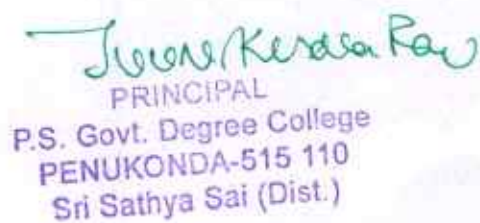 Rao
PRINCIPAL
P.S. Govt. Degree College
PENUKONDA-515 110
Sri Sathya Sai (Dist.)